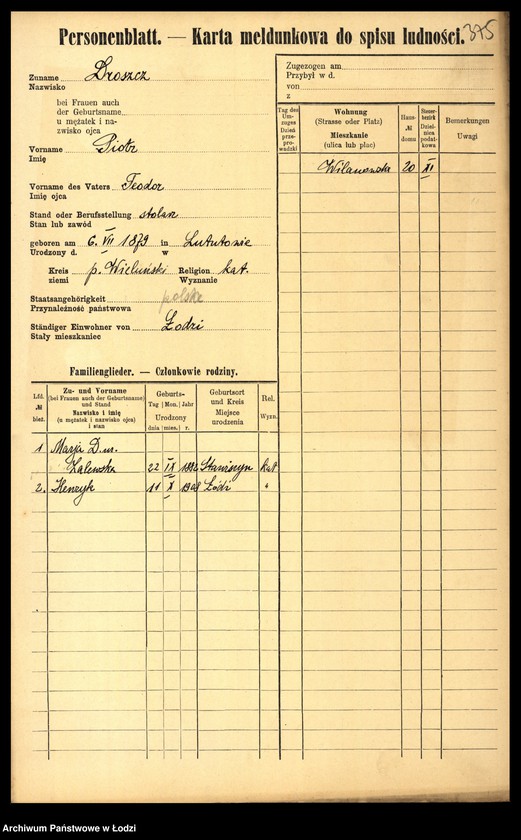 Personenblatt. — Karta meldunkowa do spisu ludności. 375
Zuname Droszcz
Nazwisko
bei Frauen auch
der Geburtsname
u mężatek i na-
zwisko ojca
Vorname Piotr
Imię
Vorname des Vaters Teodor
Imię ojca
Stand oder Berufsstellung stolarz
Stan lub zawód
geboren am 6. VII 1879 in Lututowie
Urodzony d. w
Kreis p. Wieluński Religion kat.
ziemi Wyznanie
Staatsangehörigkeit polska
Przynależność państwowa
Ständiger Einwohner von Łodzi
Stały mieszkaniec
Familienglieder. — Członkowie rodziny.
Lfd. № bież.
Zu- und Vorname
(bei Frauen auch der Geburtsname)
und Stand
Nazwisko i imię
(u mężatek i nazwisko ojca)
i stan
Geburts-
Tag Mon. Jahr
Urodzony
dnia mies. r.
Geburtsort
und Kreis
Miejsce
urodzenia
Rel.
Wyzn.
1 Marja D. ur.
Zalewska 22 IX 1882 kat
2. Henryk 11 X 1908 Łódź "
Zugezogen am
Przybył w d.
von
z
Tag des
Um-
zuges
Dzień
prze-
prowadzki
Wohnung
(Strasse oder Platz)
Mieszkanie
(ulica lub plac)
Haus-
№
domu
Steuer-
bezirk
Dziel-
nica
podat-
kowa
Bemerkungen
Uwagi
Wilanowska 20 XI
Archiwum Państwowe w Łodzi